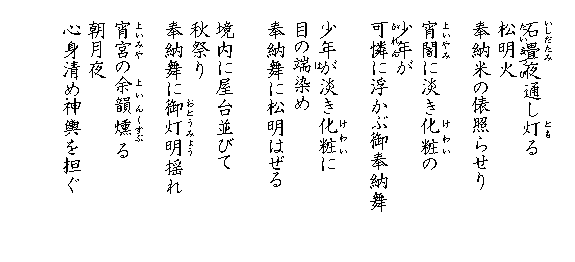 石畳夜通し灯る
松明火
奉納米の俵照らせり
宵闇に淡き化粧の
少年が
可憐に浮かぶ御奉納舞
少年が淡き化粧に
目の端染め
奉納舞に松明はぜる
境内に屋台並びて
秋祭り
奉納舞に御灯明揺れ
宵宮の余韻燻る
朝月夜
心身清め神輿を担ぐ